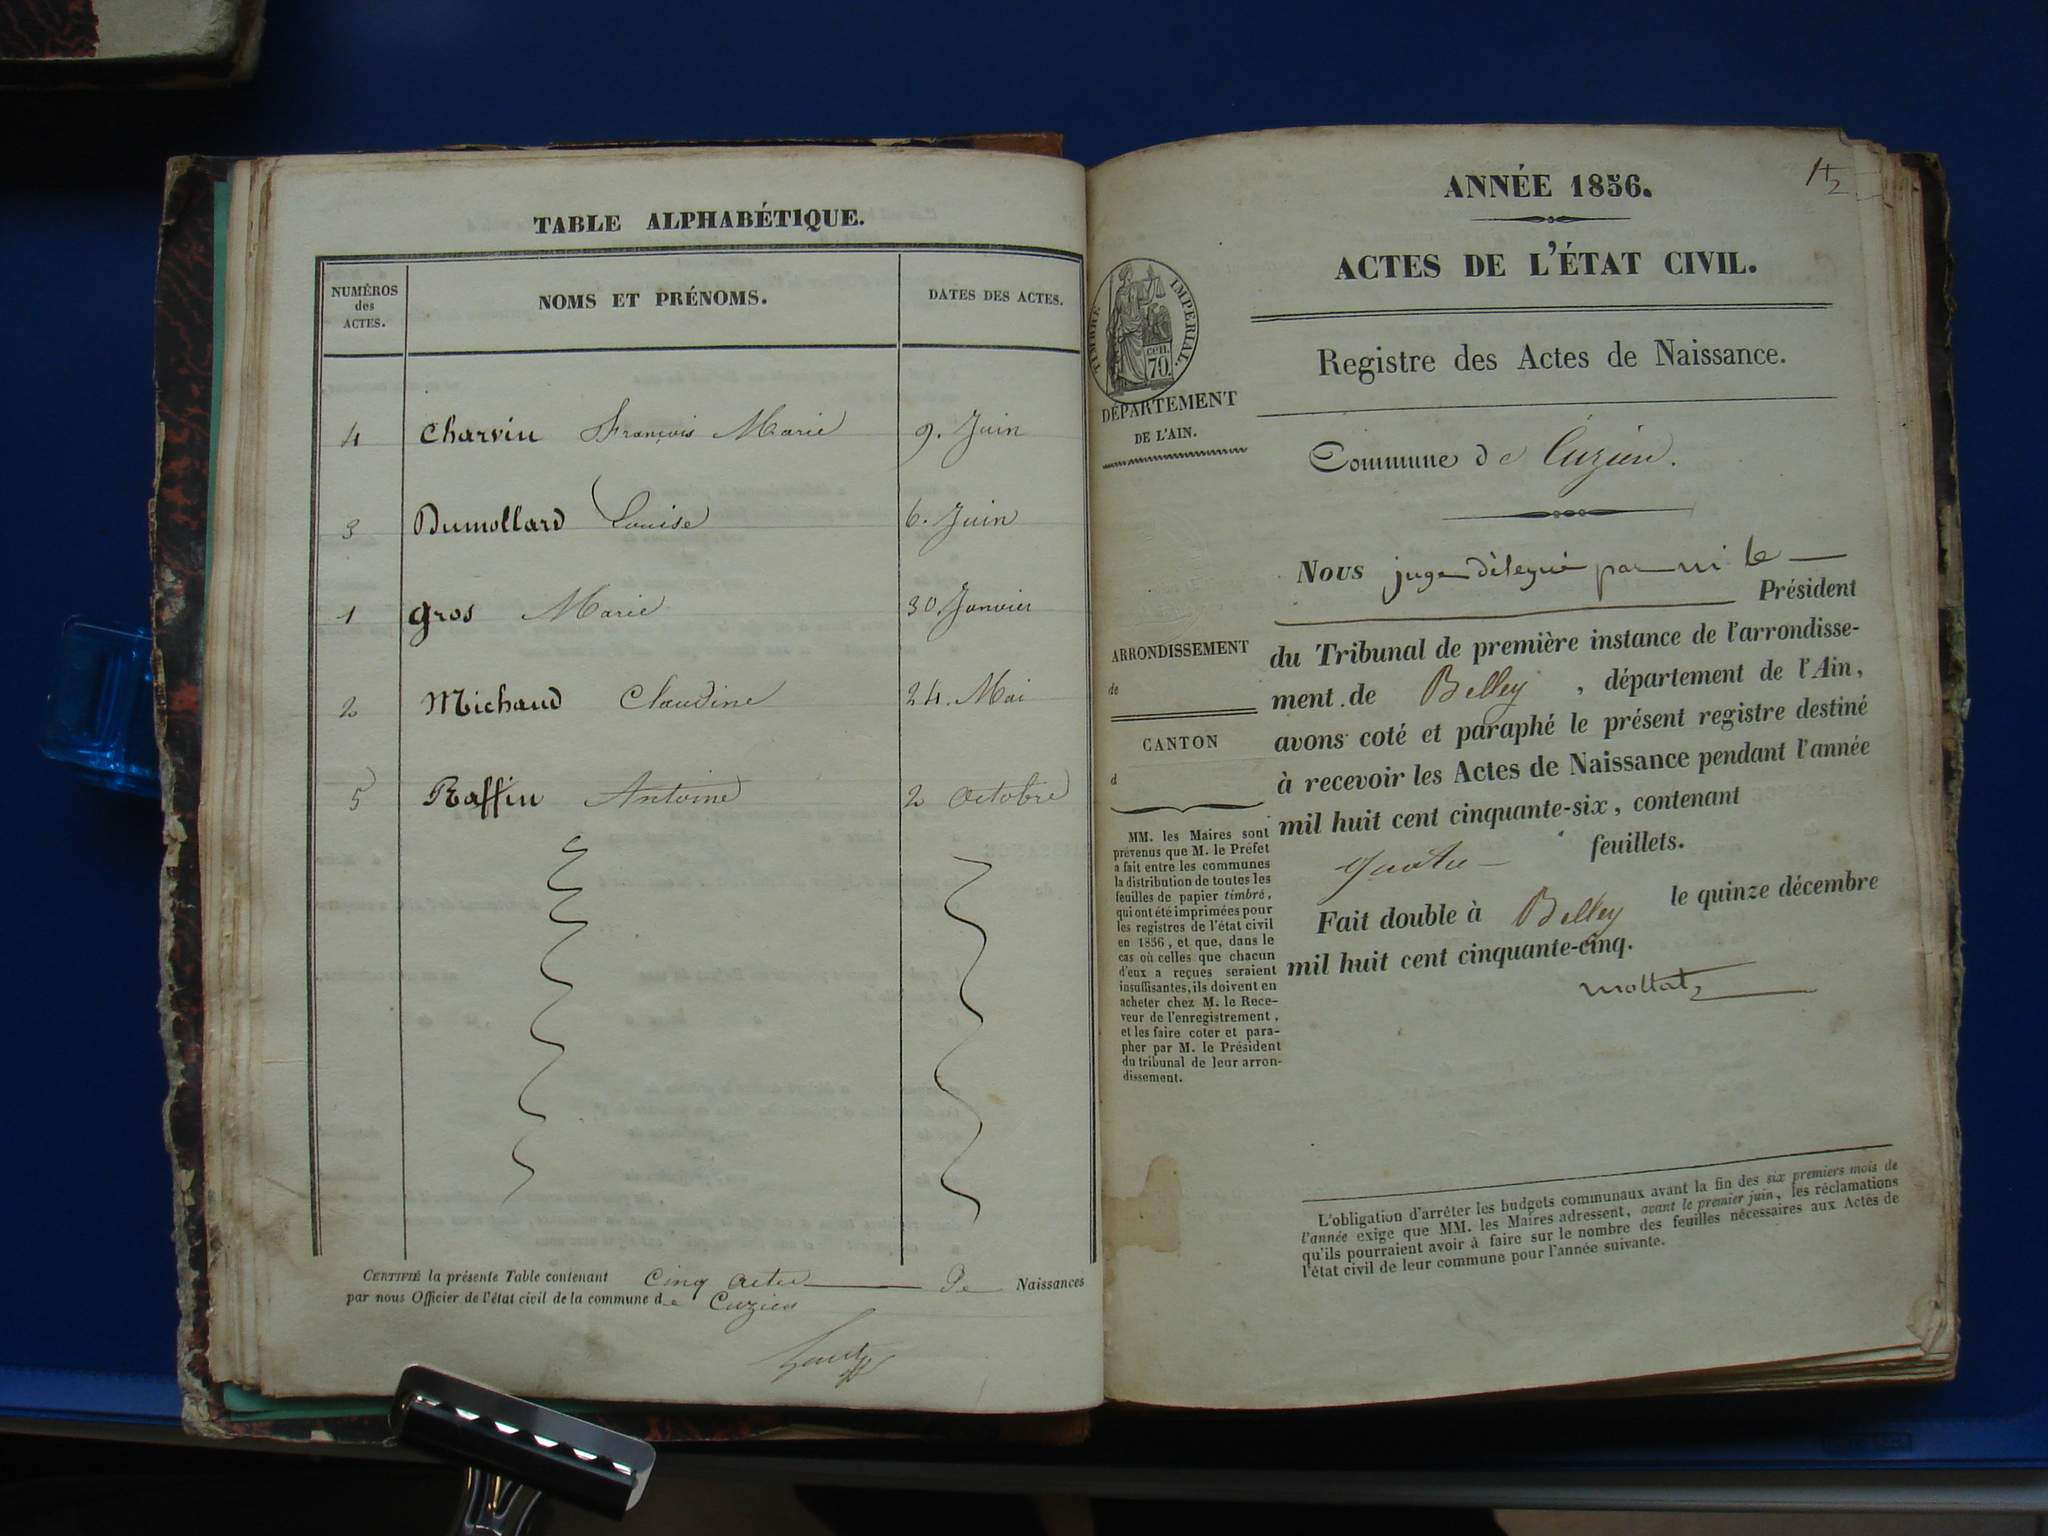 TABLE ALPHABÉTIQUE.
NUMÉROS
des
ACTES.
NOMS ET PRÉNOMS.
DATES DES ACTES.
4 Charvin François Marie 9. Juin
3 Dumollard Louise 6. Juin
1 Gros Marie 30 Janvier
2 Michaud Claudine 24. Mai
5 Raffin Antoine 2 Octobre
CERTIFIÉ la présente Table contenant cinq actes de Naissances
par nous Officier de l'état civil de la commune de Cuzieu
ANNÉE 1856.
ACTES DE L'ÉTAT CIVIL.
Registre des Actes de Naissance.
TIMBRE IMPÉRIAL.
cen.
70.
DÉPARTEMENT
DE L'AIN.
Commune de Cuzieu.
Nous juge délégué par m. le
Président
du Tribunal de première instance de l'arrondisse-
ment de Belley, département de l'Ain,
avons coté et paraphé le présent registre destiné
à recevoir les Actes de Naissance pendant l'année
mil huit cent cinquante-six, contenant
quatre feuillets.
Fait double à Belley le quinze décembre
mil huit cent cinquante-cinq.
ARRONDISSEMENT
de
CANTON
d
MM. les Maires sont
prévenus que M. le Préfet
a fait entre les communes
la distribution de toutes les
feuilles de papier timbré,
qui ont été imprimées pour
les registres de l'état civil
en 1856, et que, dans le
cas où celles que chacun
d'eux a reçues seraient
insuffisantes, ils doivent en
acheter chez M. le Rece-
veur de l'enregistrement,
et les faire coter et para-
pher par M. le Président
du tribunal de leur arron-
dissement.
L'obligation d'arrêter les budgets communaux avant la fin des six premiers mois de
l'année exige que MM. les Maires adressent, avant le premier juin, les réclamations
qu'ils pourraient avoir à faire sur le nombre des feuilles nécessaires aux Actes de
l'état civil de leur commune pour l'année suivante.